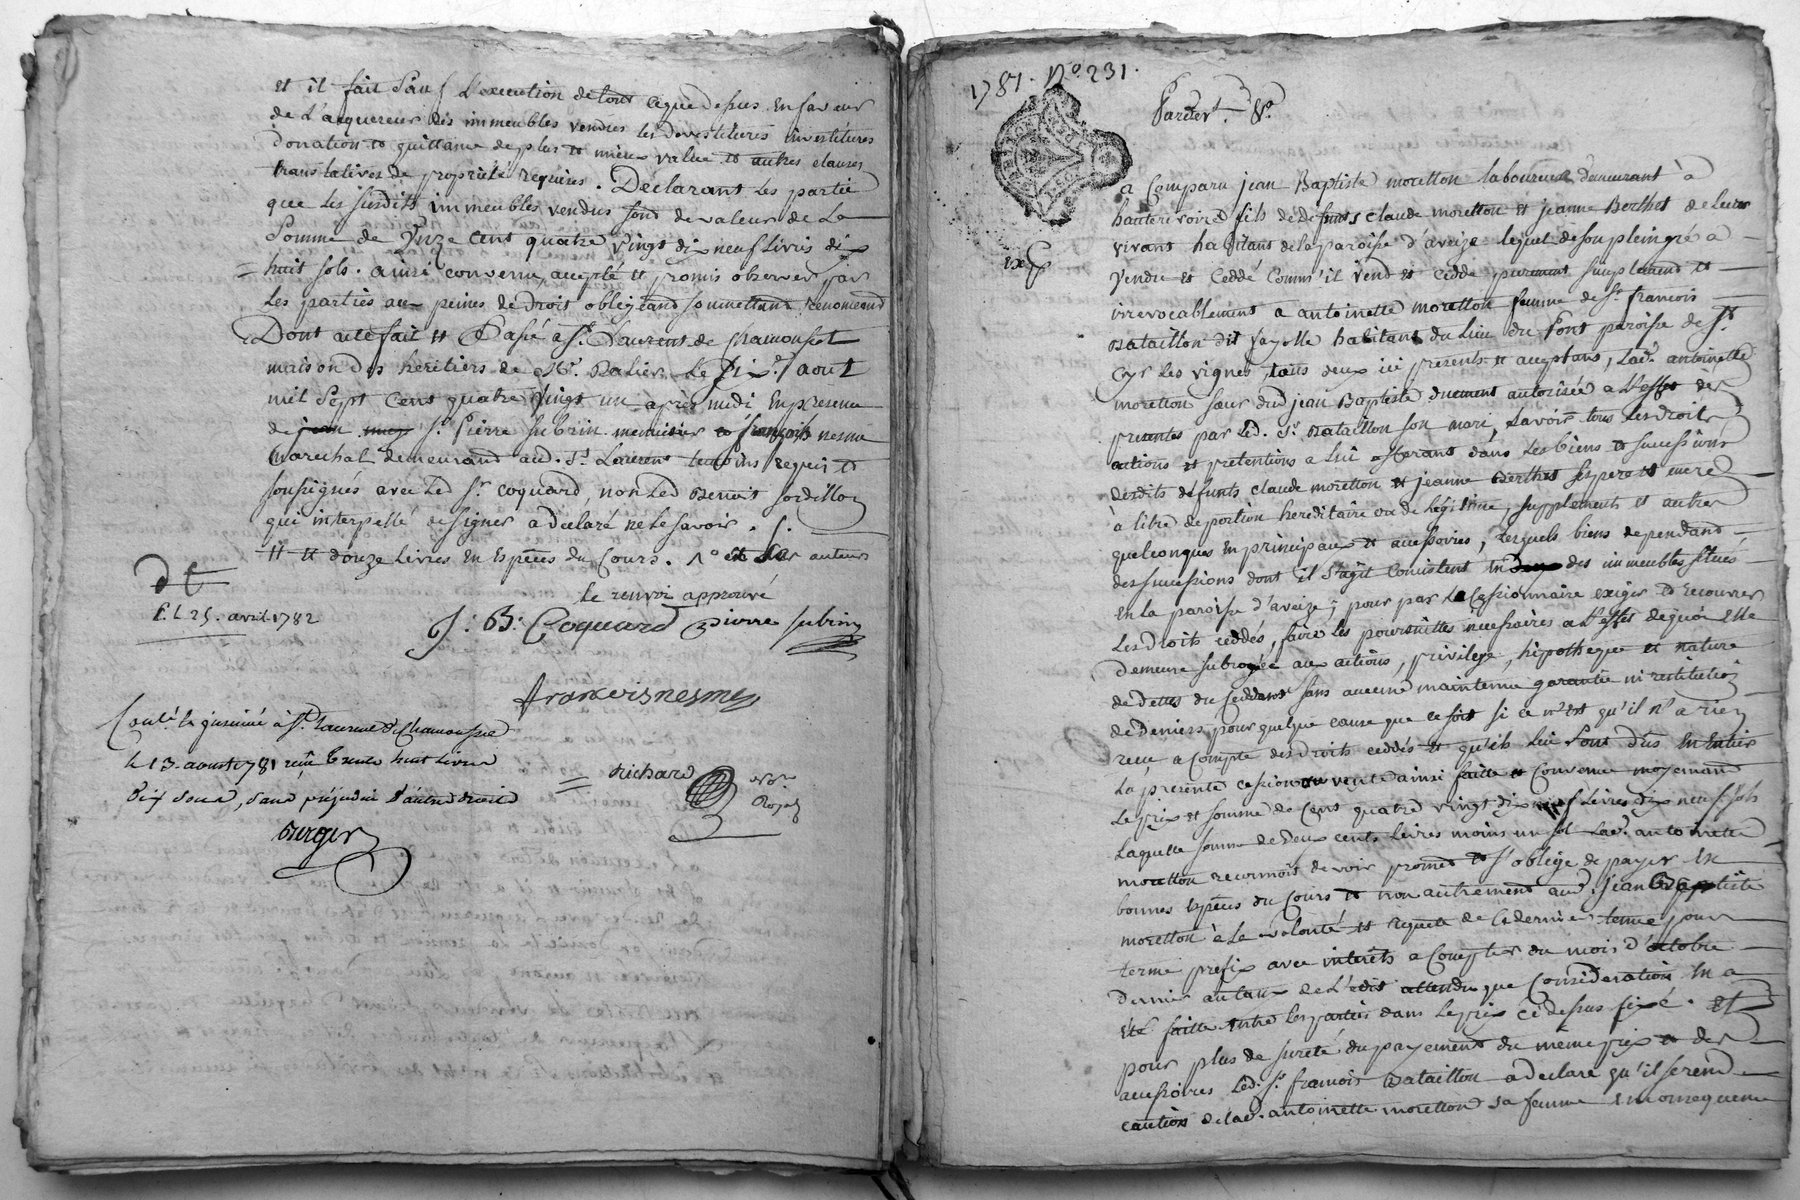 et il fait sauf l'execution de tout ceque dessus en faveur
de l'acquereur des immeubles vendus les devestitures investitures
donation et quittance de plus et mieux value et autres clauses
translatives de propriété requises. Declarant les partie
que les susdits immeubles vendus sond de valeur de la
somme de onze cent quatre vingt dix neuf livres dix
huit sols. ainsi convenu accepté et promis observer par
les parties aux peines de droit obligeand soumettant renonceand
Dont acte fait et Passé a St. Laurent de Chamousset
maison des heritiers de Mr. Ralier le dix août
mil sept cent quatre vingt un apres midi en presence
de sr. Pierre subrin menuisier et françois nesme
marechal demeurand aud. St. Laurent temoins requis et
soussignés avec led sr. coquard, non led Benoit
qui interpellé designer a declaré ne le savoir.
et et douze livres en Espèces du Cours. auteurs
le renvoi approuvé
P. L 25. avril 1782
J: B: Coquard pierre subrin
francois nesme
Contlé. & insinué à St. Laurent de Chamousset
le 13. aoust 1781 reçu trente huit livres
dix sous, sans préjudice d'autre droit
Richard
no.re
Royal
1781. No. 231.
Pardevt. &a.
a comparu jean Baptiste moretton laboureur demeurant à
hauterivoire fils de defunts claude moretton et jeanne Berthet de leur
vivant habitans de la paroisse d'aveize lequel de son plein gré a
vendu et ceddé comm'il vend et cedde purement simplement et
irrevocablement a antoinette moretton femme de sr. françois
Bataillon dit fayolle habitant du lieu du Pont paroisse de St.
cyr les vignes tous deux ici presents et acceptans, lad. antoinette
moretton sœur dud jean Baptiste duement autorisée a l'effet des
presentes par led. sr. Bataillon son mari, savoir tous les droits
actions et pretentions a lui obterant dans les biens et successions
desdits defunts claude moretton et jeanne Berthet ses pere et mere
à titre de portion hereditaire ou de legitime, supplement et autres
quelconques en principaux et accessoires, lesquels biens dependand
des successions dont il s'agit consistent en des immeubles situés
en la paroisse d'aveize; pour par la cessionnaire exiger et recouvrer
les droits ceddés, faire les poursuittes necessaires a l'effet dequoi elle
demeure subrogée aux actions, privilege, hipotheque et nature
de dettes du ceddant sans aucune maintenue garantie ni restitution
de deniers pour quelque cause que ce soit si ce n'est qu'il n'a rien
recu a compte des droits ceddés et qu'ils lui sont dus en entier
la presente cession ou vente ainsi faitte et convenue moyenand
le prix et somme de cent quatre vingt dix neuf livres dix neuf sols
laquelle somme de deux cents livres moins un sol lad. antoinette
moretton reconnoit devoir promet et s'oblige de payer en
bonnes especes du cours et non autrement aud. jean Baptiste
moretton à la volonté et requete de ce dernier terme pour
terme prefix avec interêts a compter du mois d'octobre
dernier au taux de l'édit attendu que consideration en a
été faitte entre les parties dans le prix ci dessus fixé. et
pour plus de sureté du payement du même prix et des
accessoires led. sr. françois Bataillon a declaré qu'il se rend
caution de lad. antoinette moretton sa femme en consequence